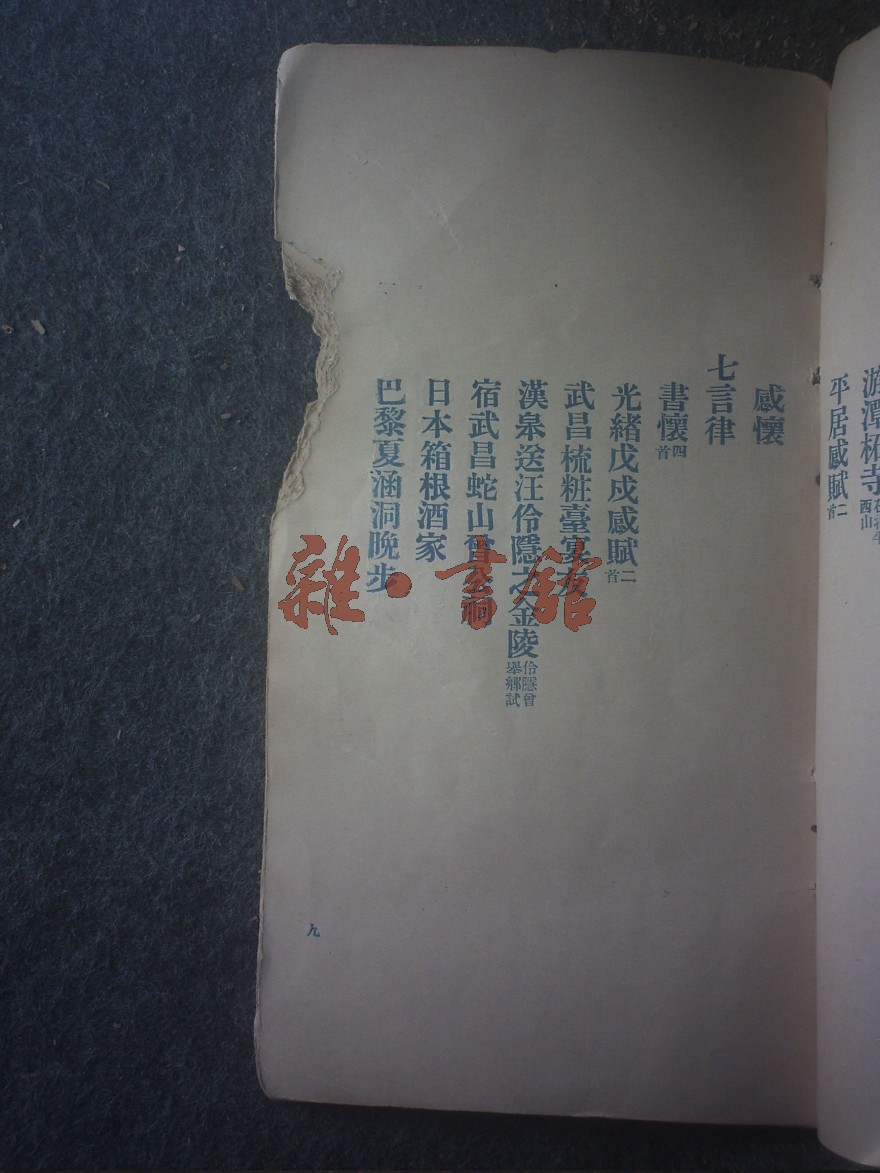 平居感賦二首
感懷
七言律
書懷四首
光緒戊戌感賦二首
武昌梳粧臺宴友
漢皋送汪伶隱之金陵伶隱曾舉鄉試
宿武昌蛇山曾公祠
日本箱根酒家
巴黎夏涵洞晚步
九
雜·書館